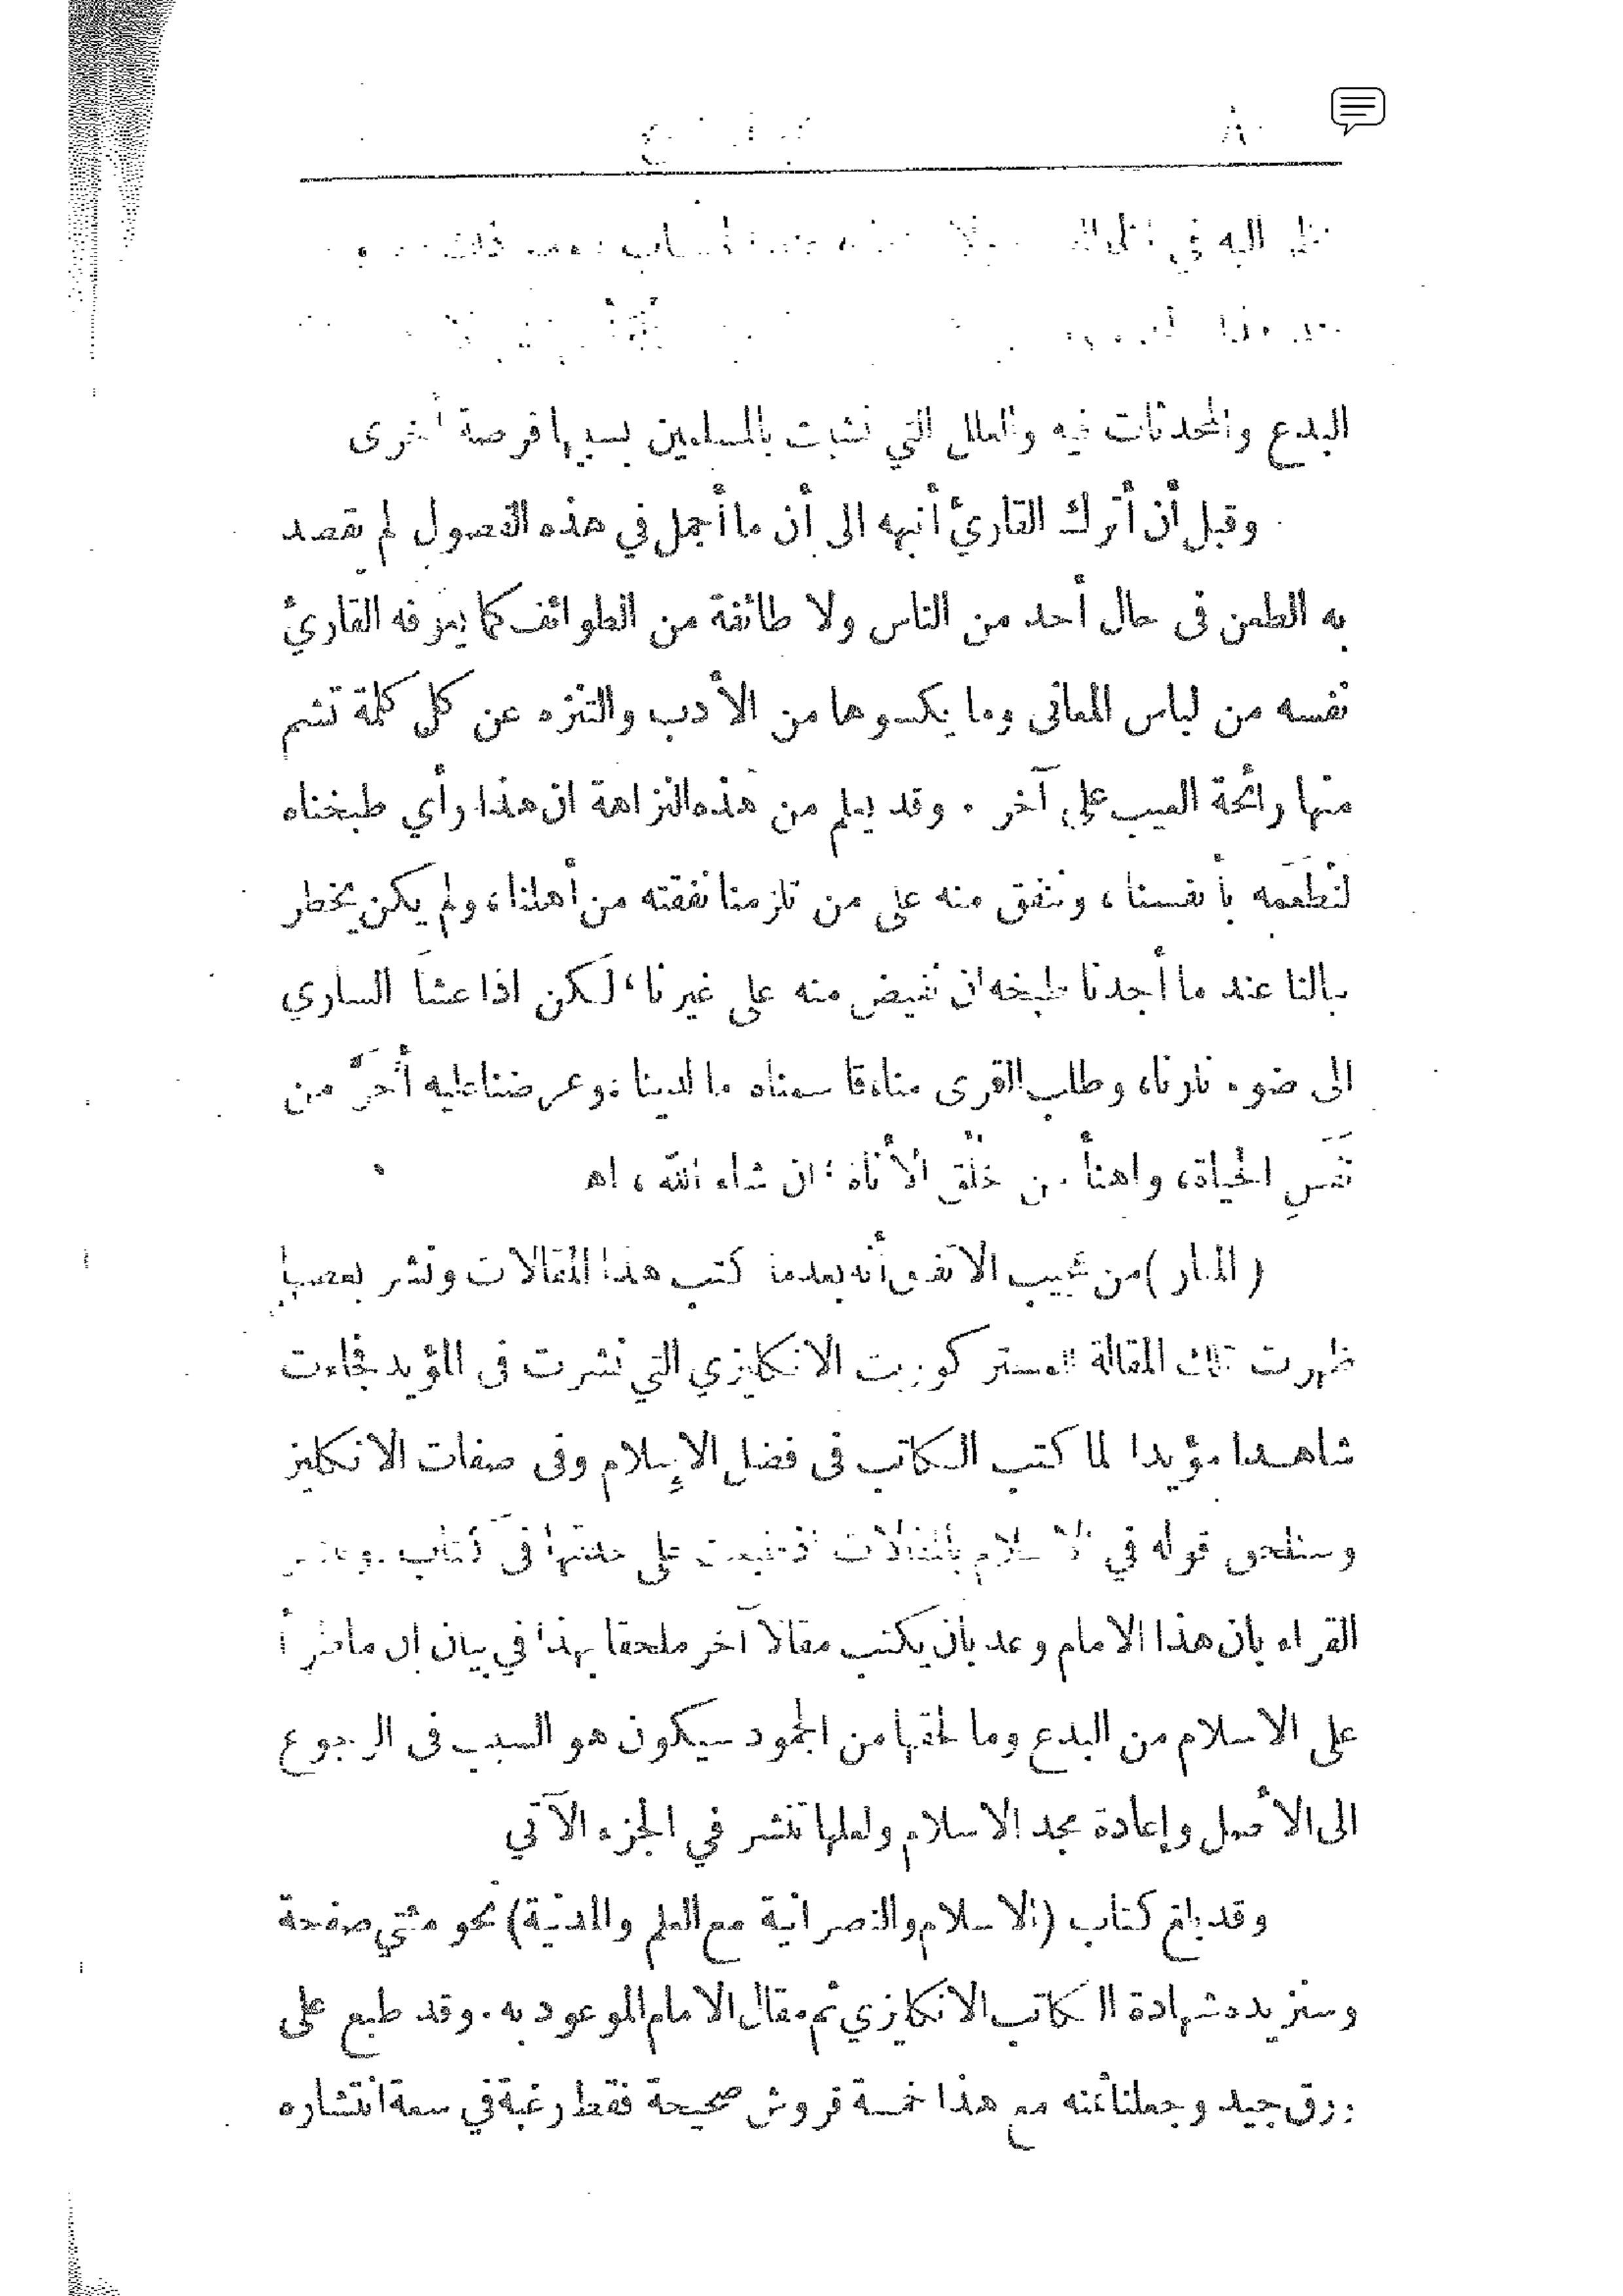 اليه في
البدع والمحدثات فيه والعلل التي نشبت بالمسلمين بسببها فرصة أخرى
وقبل أن أترك القارئ أنبهه الى أن ما أجمل في هذه الفصول لم يقصد
به الطعن في حال أحد من الناس ولا طائفة من الطوائف كما يعرفه القارئ
نفسه من لباس المعاني وما يكسوها من الأدب والتنزه عن كل كلمة تشم
منها رائحة العيب على آخر . وقد يعلم من هذه النزاهة ان هذا رأي طبخناه
لنَطعَمه بأنفسنا ، وننفق منه على من تلزمنا نفقته من أهلنا ، ولم يكن يخطر
ببالنا عند ما أجدنا طبخه ان نفيض منه على غيرنا ، لكن اذا عشَا الساري
الى ضوء نارنا ، وطلب القرى منا ، فاسمناه ما لدينا ، وعرضنا عليه أحرَّ من
نَفَسِ الحياة ، واهنأ من خلُق الأناة ، ان شاء الله ، اه
( المنار ) من عجيب الاتفاق أنه بعدما كتب هذا المقالات ونشر بعضها
ظهرت تلك المقالة للمستر كوربت الانكليزي التي نشرت في المؤيد فجاءت
شاهدا مؤيدا لما كتب الكاتب في فضل الإسلام وفى صفات الانكليز
وسنلحق قوله في الاسلام بالمقالات على حدتها في كتاب
القراء بان هذا الامام وعد بأن يكتب مقالا آخر ملحقا بهذا في بيان ان ما طرأ
على الاسلام من البدع وما لحقها من الجمود سيكون هو السبب في الرجوع
الى الأصل وإعادة مجد الاسلام ولعلها تنشر في الجزء الآتي
وقد بلغ كتاب (الاسلام والنصرانية مع العلم والمدنية) نحو مئتي صفحة
وسنزيده شهادة الكاتب الانكليزي ثم مقال الامام الموعود به . وقد طبع على
ورق جيد وجعلنا ثمنه مع هذا خمسة قروش صحيحة فقط رغبة في سعة انتشاره